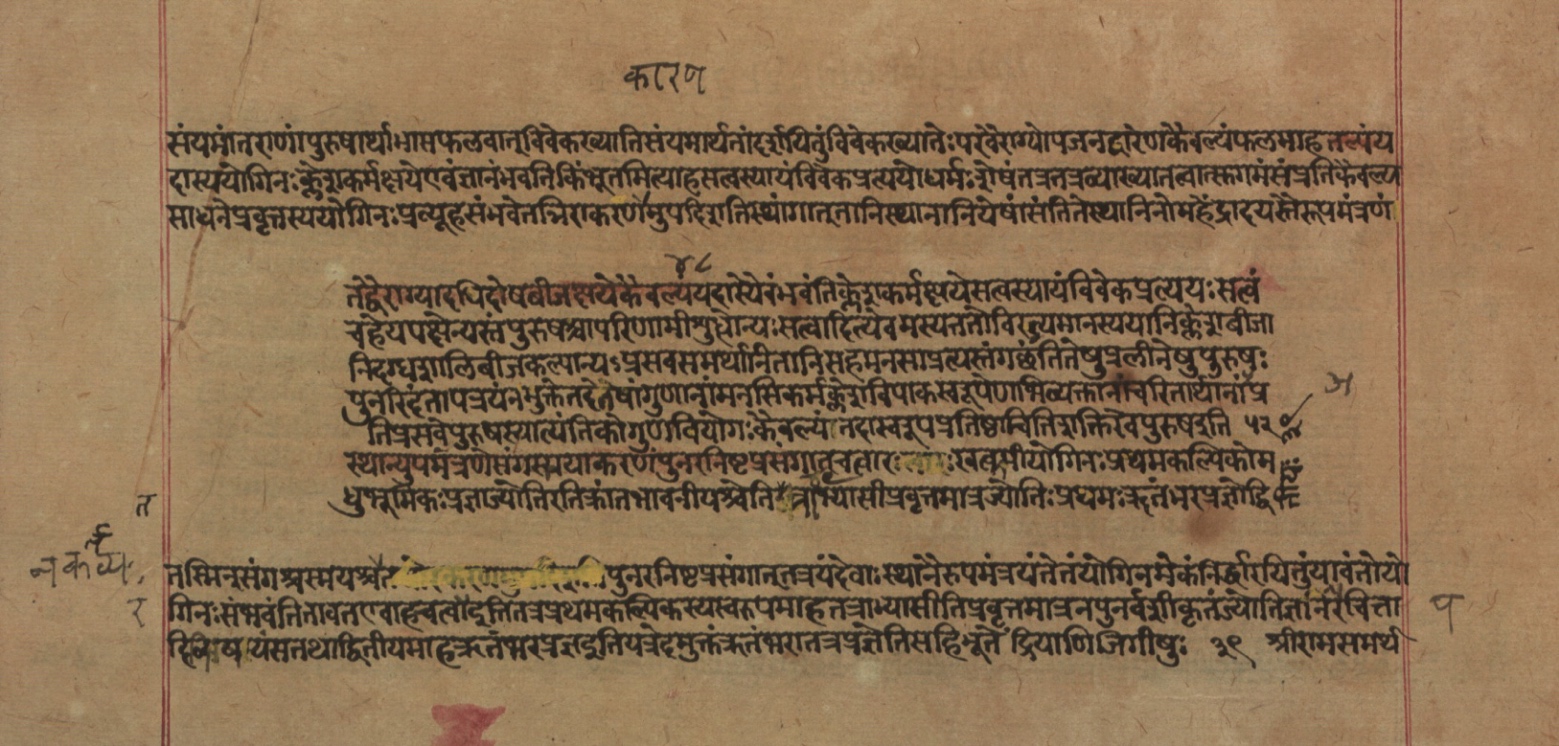 कारण
संयमांतराणांपुरुषार्थाभासफलवात्विवेकख्यातिसंयमार्थनांदर्शयितुंविवेकख्यातेःपरवैराग्योपजनद्वारेणकैवल्यंफलमाहतत्यंय
दास्ययोगिनःक्लेशकर्मक्षयेएवंज्ञानंभवतिकिंभूतमित्याहसत्वस्यायंविवेकप्रत्ययोधर्मःशेषंतत्रतत्रव्याख्यातत्वात्सुगमंसंप्रतिकैवल्य
साधनेप्रवृत्तस्ययोगिनःप्रत्यूहसंभवेतन्निराकरणमुपदिशतिस्थांगात्तानिस्थानानियेषांसंतितेस्थानिनोमहेंद्रादयस्तैरुपमंत्रणं
४८
तद्वैराग्यादपिदोषबीजक्षयेकैवल्यंयदास्यैवंभवंतिक्लेशकर्मक्षयेसत्वस्यायंविवेकप्रत्ययःसत्वं
चहेयपक्षेन्यस्तंपुरुषश्चापरिणामीशुधोन्यःसत्वादित्येवमस्यततोविरज्यमानस्ययानिक्लेशबीजा
निदग्धशालिबीजकल्पान्यऽप्रसवसमर्थानितानिसहमनसाप्रत्यस्तंगछंतितेषुप्रलीनेषुपुरुषः
पुनरिदंतापत्रयंनभुंक्तेतदेतेषांगुणानांमनसिकर्मक्लेशविपाकस्वरूपेणाभिव्यक्तानांचरितार्थानांप्र
तिप्रसवेपुरुषस्यात्यंतिकोगुणवियोगःकैवल्यंतदास्वरुपप्रतिष्ठाचितिशक्तिरेवपुरुषइति
स्थान्युपमंत्रणेसंगस्मयाकरणंपुनरनिष्टप्रसंगात्चत्वारःखल्वमीयोगिनःप्रथमकल्पिकोम
धुभूमिकःप्रज्ञाज्योतिरतिक्रांतभावनीयश्चेतितत्राभ्यासीप्रवृत्तमात्रज्योतिःप्रथमःऋतंभरप्रज्ञोद्वि
तस्मिन्संगश्चस्मयश्चपुनरनिष्टप्रसंगात्तत्रयंदेवाःस्थानैरुपमंत्रयंतेतंयोगिनमेकंनिर्द्धारयितुंयावंतोयो
गिनःसंभवंतितावतएवाहचत्वाइतितत्रप्रथमकल्पिकस्यस्वरुपमाहतत्राभ्यासीतिप्रवृत्तमात्रनपुनर्वशीकृतंज्योतिर्ज्ञानंरचित्ता
दिविषयंसतथाद्वितीयमाहऋतंभरप्रज्ञइतियत्रेदमुक्तंऋतंभरातत्रप्रज्ञेतिसहिभूतेंद्रियाणिजिगीषुः ३९ श्रीरामसमर्थ